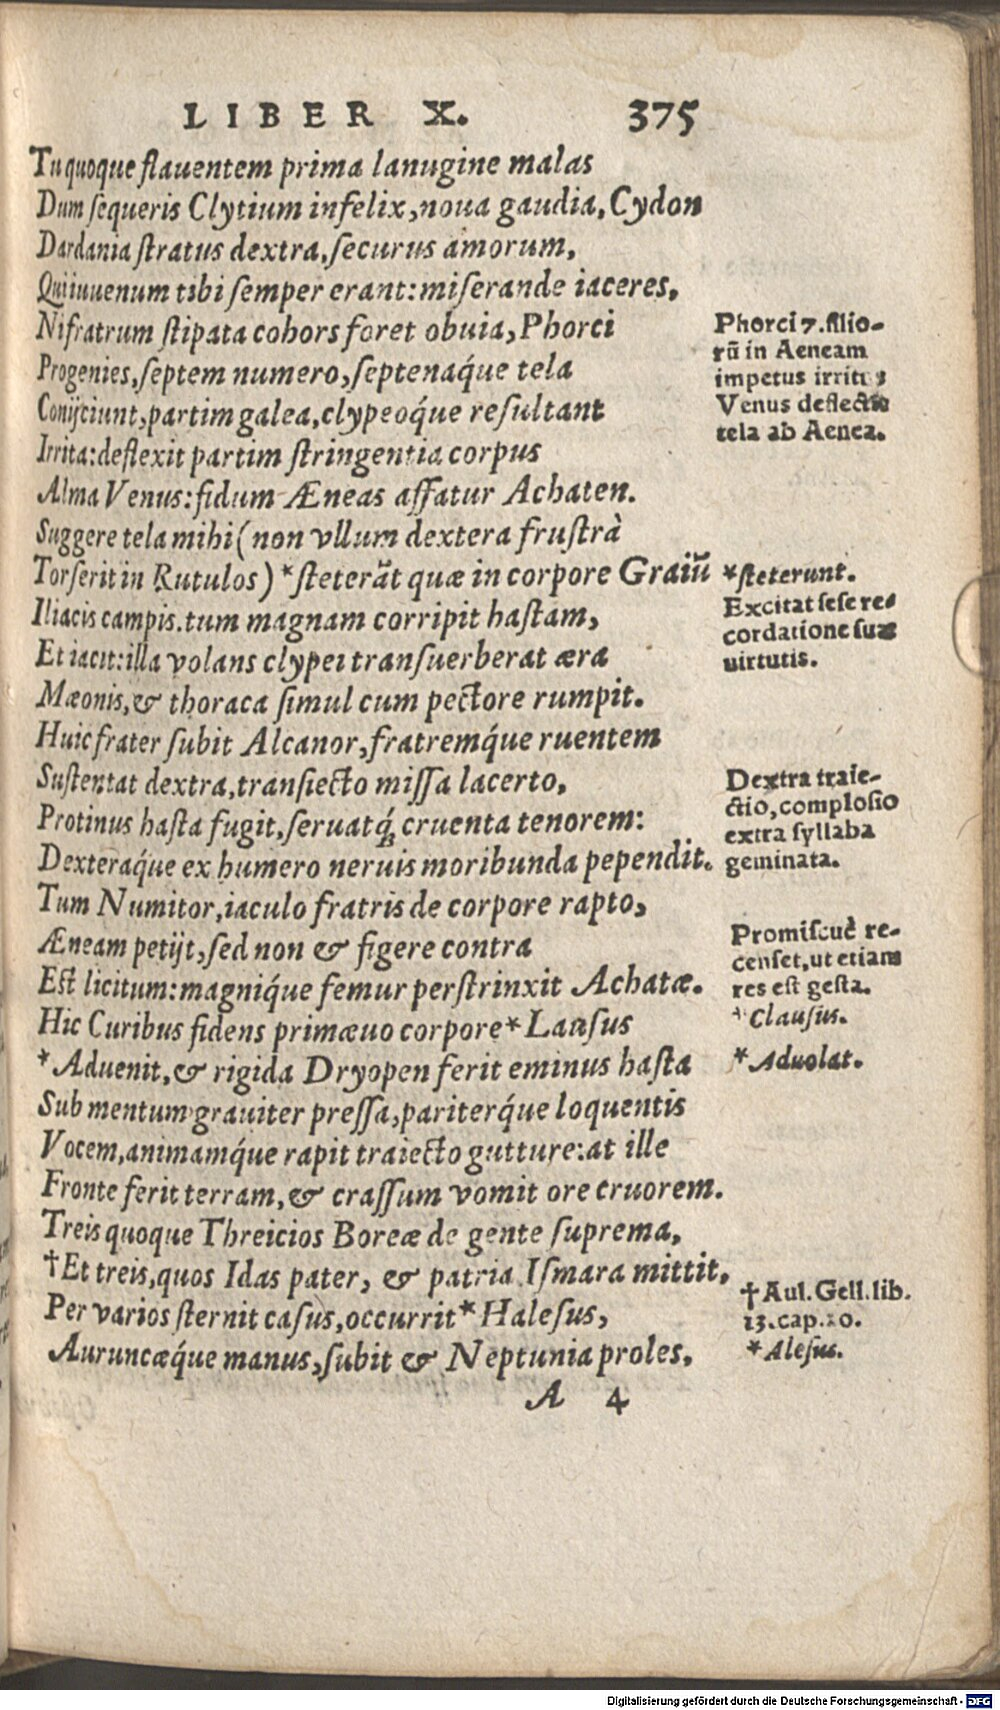 LIBER X. 375
Tu quoque flauentem prima lanugine malas
Dum sequeris Clytium infelix, noua gaudia, Cydon
Dardania stratus dextra, securus amorum,
Qui iuuenum tibi semper erant: miserande iaceres,
Ni fratrum stipata cohors foret obuia, Phorci
Progenies, septem numero, septenaq́ue tela
Conijciunt, partim galea, clypeoq́ue resultant
Irrita: deflexit partim stringentia corpus
Alma Venus: fidum Æneas affatur Achaten.
Suggere tela mihi (non vllum dextera frustrà
Torserit in Rutulos) *steterāt quæ in corpore Graiū
Iliacis campis. tum magnam corripit hastam,
Et iacit: illa volans clypei transuerberat æra
Mæonis, & thoraca simul cum pectore rumpit.
Huic frater subit Alcanor, fratremq́ue ruentem
Sustentat dextra, transiecto missa lacerto,
Protinus hasta fugit, seruatq́; cruenta tenorem:
Dexteraq́ue ex humero neruis moribunda pependit.
Tum Numitor, iaculo fratris de corpore rapto,
Æneam petijt, sed non & figere contra
Est licitum: magniq́ue femur perstrinxit Achatæ.
Hic Curibus fidens primæuo corpore *Lausus
*Aduenit, & rigida Dryopen ferit eminus hasta
Sub mentum grauiter pressa, pariterq́ue loquentis
Vocem, animamq́ue rapit traiecto gutture: at ille
Fronte ferit terram, & crassum vomit ore cruorem.
Treis quoque Threicios Boreæ de gente suprema,
†Et treis, quos Idas pater, & patria Ismara mittit,
Per varios sternit casus, occurrit *Halesus,
Auruncæq́ue manus, subit & Neptunia proles,
A 4
Phorci 7. filio-
rū in Aeneam
impetus irritus
Venus deflectit
tela ab Aenea.
*steterunt.
Excitat sese re-
cordatione suae
uirtutis.
Dextra traie-
ctio, complosio
extra syllaba
geminata.
Promiscuè re-
censet, ut etiam
res est gesta.
*Clausus.
*Aduolat.
†Aul. Gell. lib.
13. cap. 20.
*Alesus.
Digitalisierung gefördert durch die Deutsche Forschungsgemeinschaft - DFG